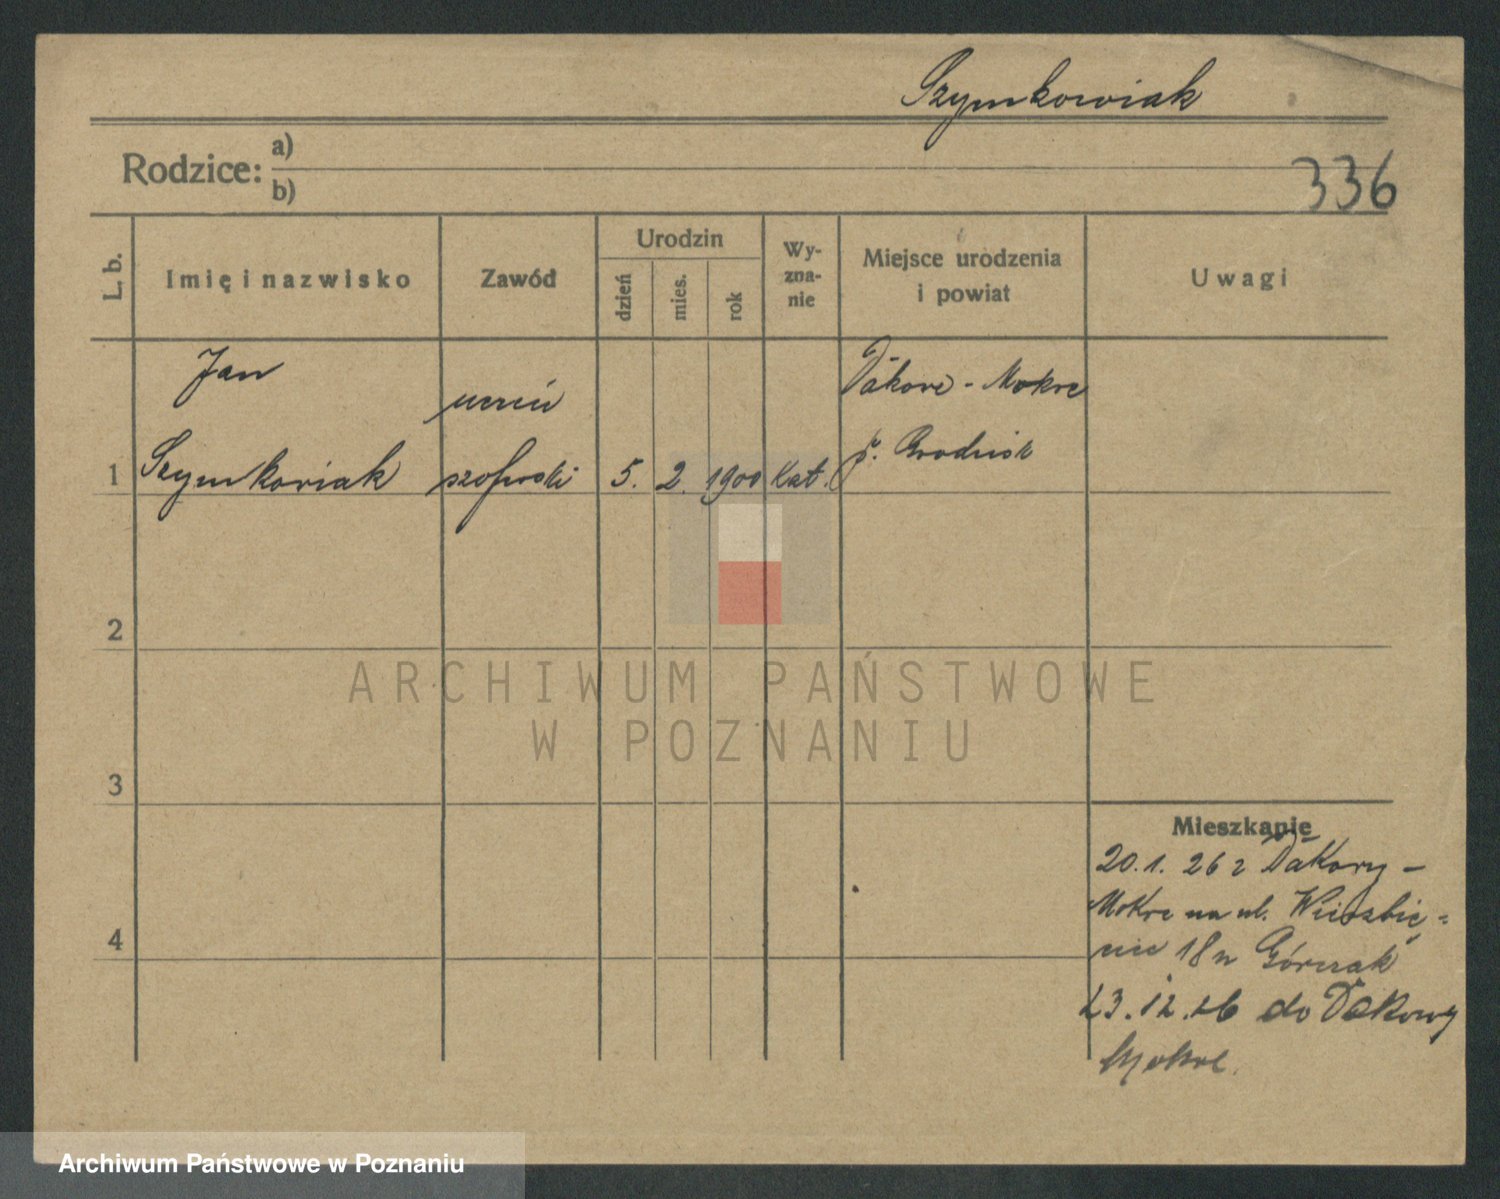 Szymkowiak
Rodzice: a)
b)
336
L. b.
Imię i nazwisko
Zawód
Urodzin
dzień
mies.
rok
Wy-
zna-
nie
Miejsce urodzenia
i powiat
Uwagi
Jan
uczeń
Dakowe - Mokre
p. Grodzisk
1 Szymkowiak szoferski 5. 2. 1900 kat.
2
ARCHIWUM PAŃSTWOWE
W POZNANIU
3
Mieszkanie
20.1. 26 z Dakowy -
Mokre na ul. Wierzbię =
4
cice 18 n Górczak
23.12.26 do Dakowy
Mokre.
Archiwum Państwowe w Poznaniu